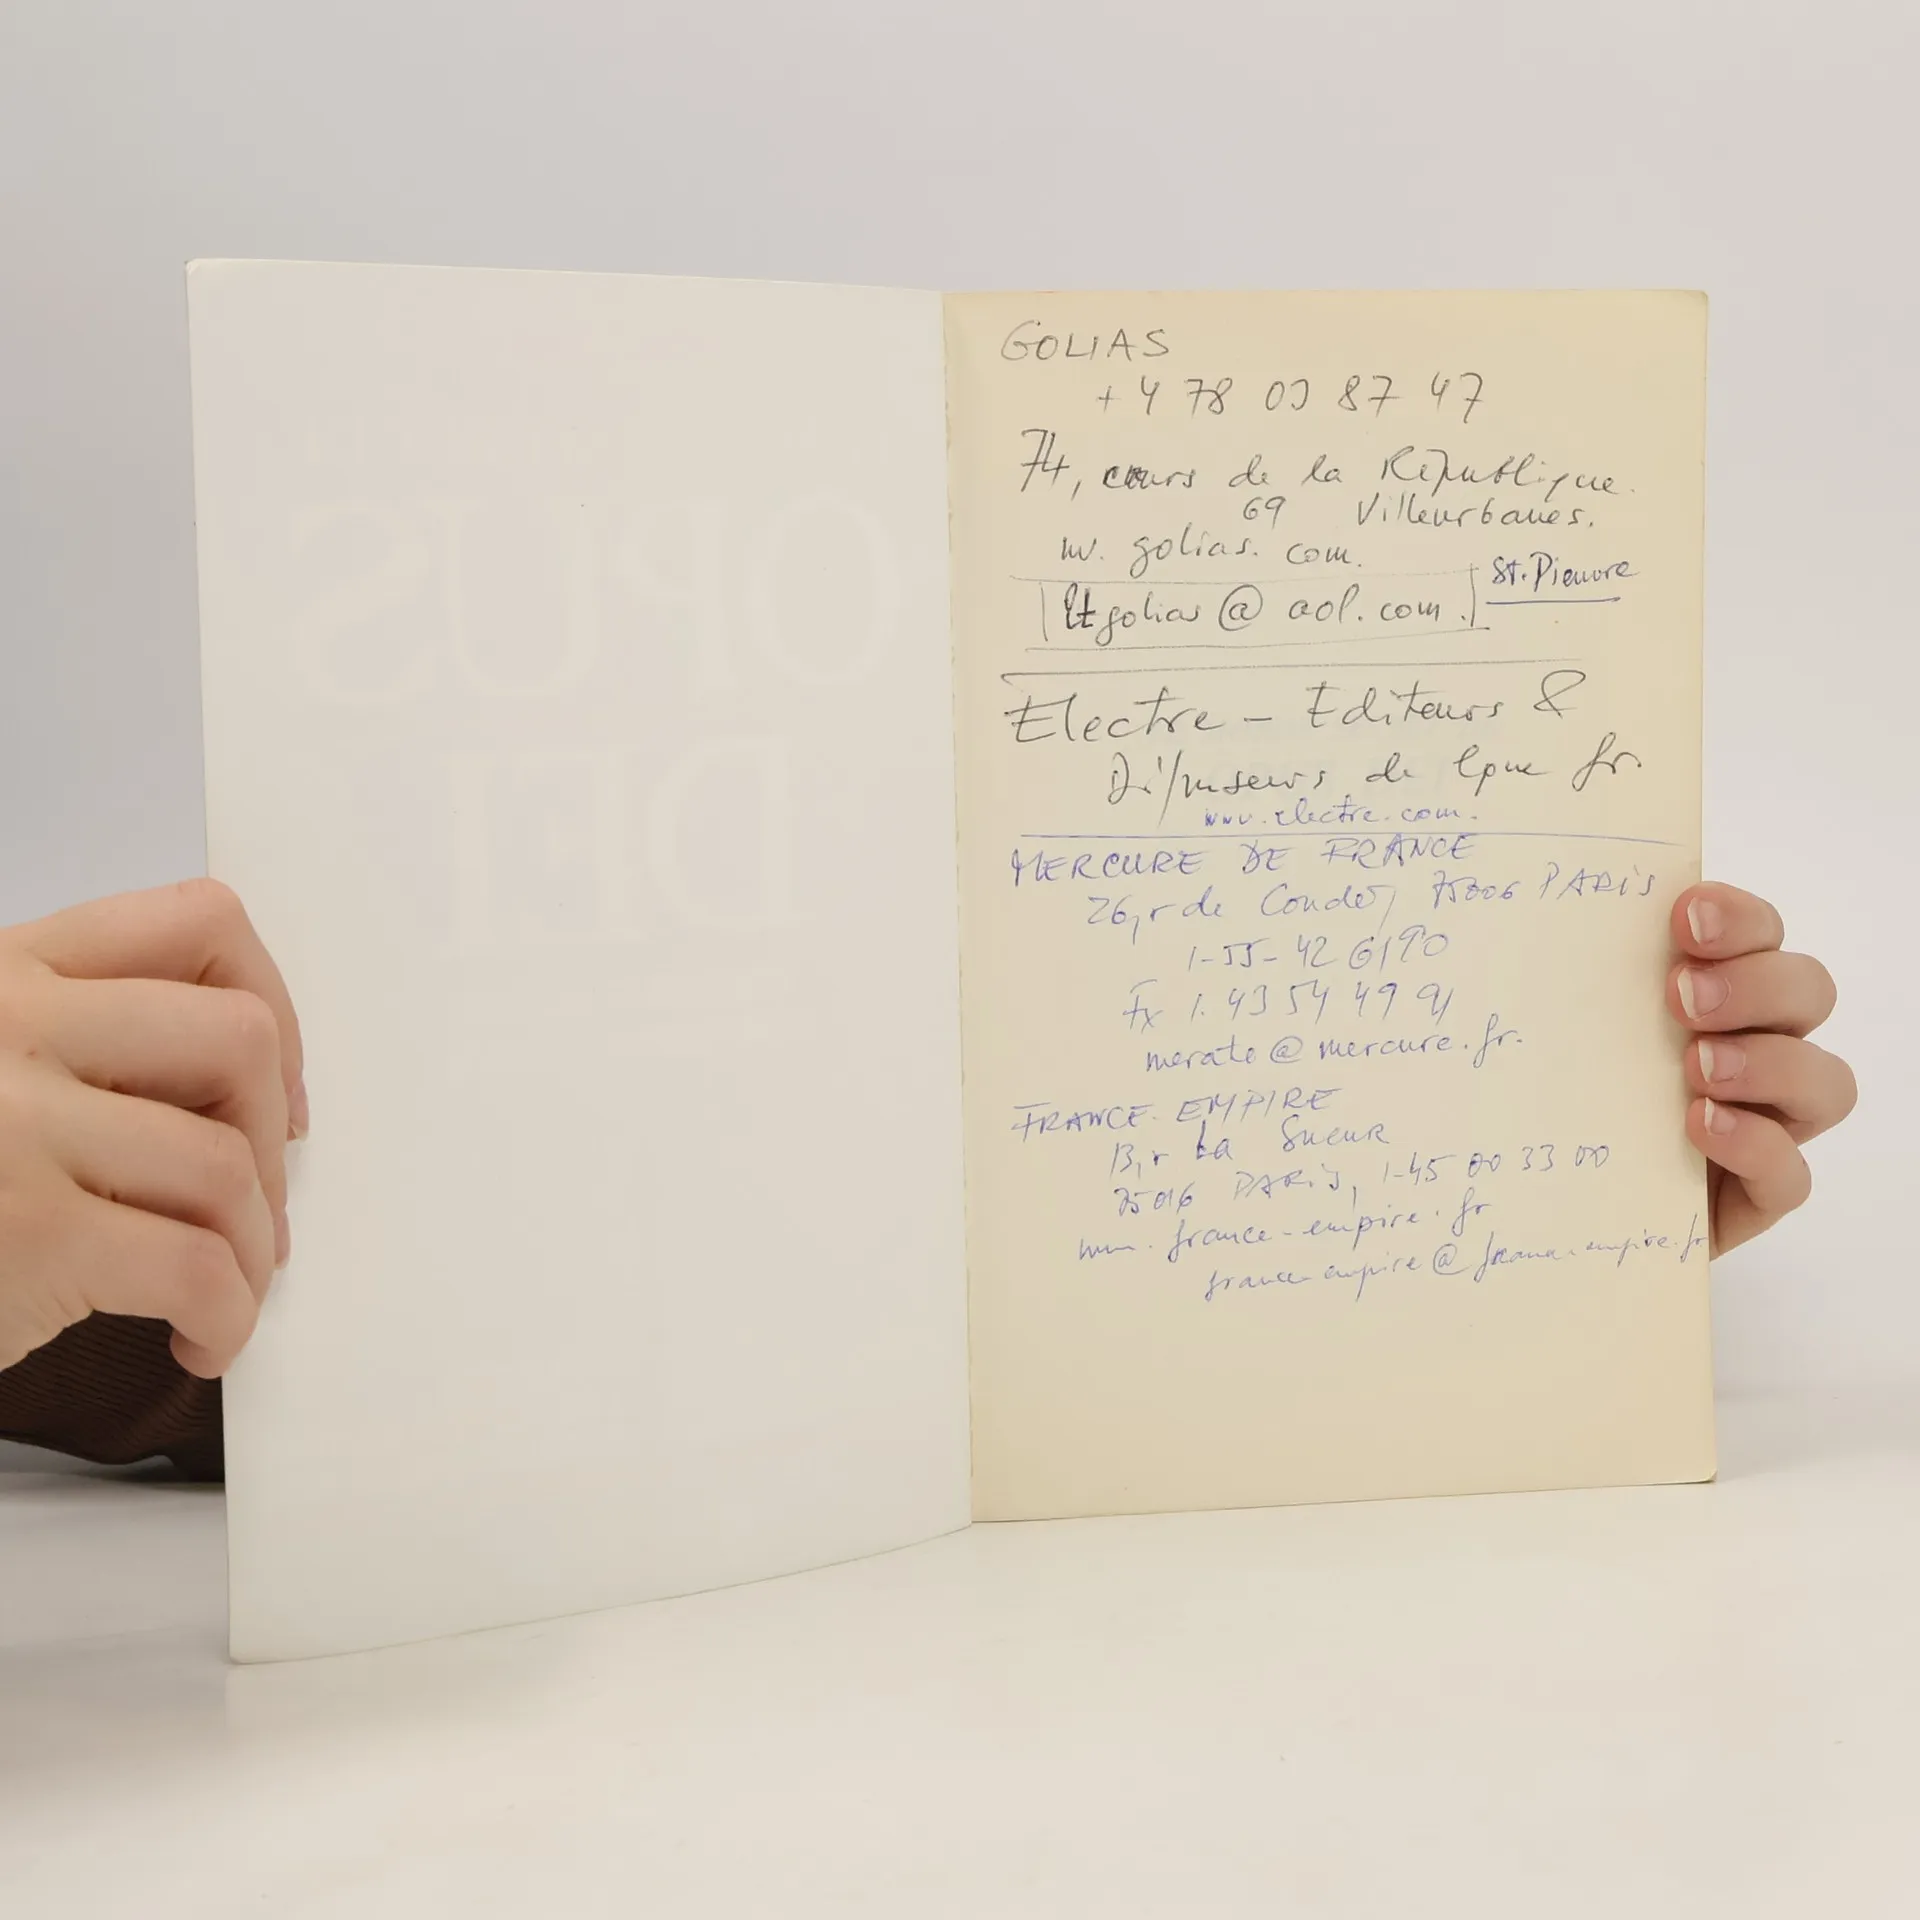 GOLIAS
+4 78 03 87 47
74, cours de la République.
69 Villeurbanes.
w. golias. com.
St. Pierre
golias @ aol. com.
Electre - Editeurs &
Diffuseurs de lgue fr.
www.electre.com.
MERCURE DE FRANCE
26, r de Condé, 75006 PARIS
1-55-42 6190
Fx 1. 43 54 49 91
@ mercure. fr.
FRANCE. EMPIRE
13, r La Sueur
75016 PARIS, 1-45 00 33 00
www. france-empire. fr
france-empire @ france-empire. fr
OPUS
DEI